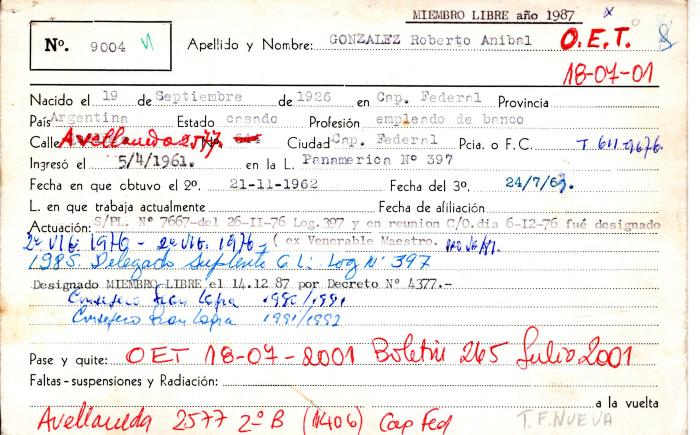 MIEMBRO LIBRE año 1987 x
Nº. 9004 Apellido y Nombre: GONZALEZ Roberto Anibal O.E.T.
18-07-01
Nacido el 19 de Septiembre de 1926 en Cap. Federal Provincia
País Argentina Estado casado Profesión empleado de banco
Calle Avellaneda 2577 Nº 544 Ciudad Cap. Federal Pcia. o F.C. T 611-9676.
Ingresó el 5/4/1961. en la L. Panamerica Nº 397
Fecha en que obtuvo el 2º. 21-11-1962 Fecha del 3º. 24/7/63.
L. en que trabaja actualmente Fecha de afiliación
Actuación: S/PL. Nº 7667-del 26-II-76 Log.397 y en reunion C/O.dia 6-12-76 fué designado
2º VIG. 1976 - 2º VIG. 1976 - ( ex Venerable Maestro.
1985. Delegado Suplente G.L: Log Nº 397
Designado MIEMBRO LIBRE el 14.12 87 por Decreto Nº 4377.-
Consejero Gran Logia 1990/1991
Consejero Gran Logia 1991/1992
Pase y quite: OET 18-07-2001 Boletin 265 Julio 2001
Faltas-suspensiones y Radiación:
a la vuelta
Avellaneda 2577 2º B (1406) Cap Fed T.F. NUEVA